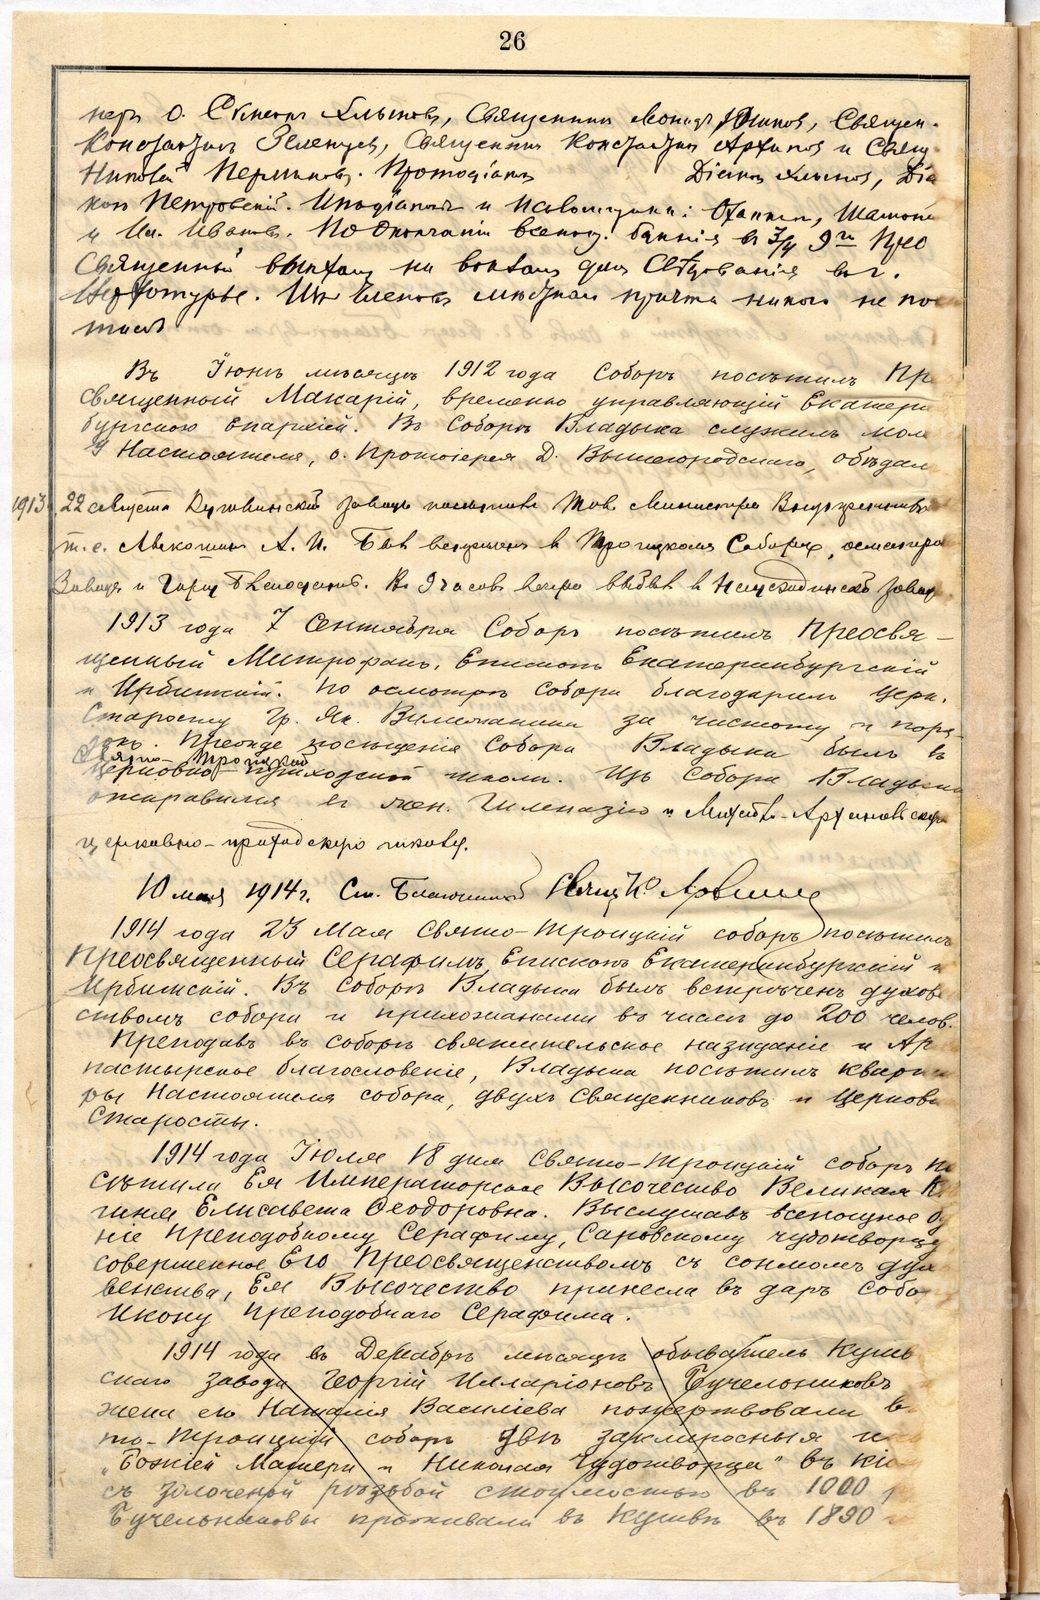 26
о. Симеонъ Хлыновъ, Священникъ Леонидъ, Священ.
Константинъ Зеленцевъ, Священникъ Константинъ Архиповъ и Свящ.
Николай Пермяковъ. Протодіаконъ Діаконъ Хлыновъ, Діа
конъ Петровскій. Иподіаконъ и
и Ив. Ивановъ. По окончаніи всенощ. бдѣнія въ 3/4 9 ч Прео
Священный выѣхалъ на вокзалъ для слѣдованія въ г.
Верхотурье. Изъ членовъ мѣстнаго причта никого не
Въ Іюнѣ мѣсяцѣ 1912 года Соборъ посѣтилъ Пр
священный Макарій, временно управляющій Екатери
бургскою епархіей. Въ соборѣ Владыка служилъ мол
У Настоятеля, о. Протоіерея Д. Вышегородскаго, обѣдал
1913 22 августа Кушвинскій заводъ посѣтилъ Тов. Министра Внутреннихъ
т. с. Лыкошинъ А. И. Былъ встрѣченъ въ Троицкомъ Соборѣ, осматри
Заводъ и Гору Благодать. Въ 9 часовъ вечера выбылъ въ заводъ
1913 года 7 Сентября Соборъ посѣтилъ Преосвя-
щенный Митрофанъ, Епископъ Екатеринбургскій
и Ирбитскій. По осмотрѣ собора благодарилъ Церк.
Старосту Гр. Як. за чистоту и поря
докъ. Прежде посѣщенія Собора Владыка былъ въ
Свято-Троицкой
Церковно-приходской школѣ. Изъ Собора Владыка
отправился въ жен. Гимназію и Михаило-Архангельскую
церковно-приходскую школу.
10 мая 1914 г. См. Благочинный Свящ. К.
1914 года 23 Мая Свято-Троицкій соборъ посѣтилъ
Преосвященный Серафимъ, Епископъ Екатеринбургскій и
Ирбитскій. Въ соборѣ Владыка былъ встрѣченъ духов
ствомъ собора и прихожанами въ числѣ до 200 челов.
Преподавъ въ соборѣ святительское назиданіе и Ар
пастырское благословеніе, Владыка посѣтилъ кварти
ры Настоятеля собора, двухъ Священниковъ и Церковн
Старосты.
1914 года Іюля 18 дня Свято-Троицкій соборъ по
сѣтила Ея Императорское Высочество Великая Кн
гиня Елисавета Ѳеодоровна. Выслушавъ всенощное бд
ніе Преподобному Серафиму, Саровскому чудотворцу
совершенное Его Преосвященствомъ съ сонмомъ дух
венства, Ея Высочество принесла въ даръ Собо
Икону Преподобнаго Серафима.
1914 года въ Декабрѣ мѣсяцѣ обыватель Кушв
скаго завода Георгій Илларіоновъ Бучельниковъ
жена его Наталія Васильева пожертвовали въ
то-Троицкій соборъ двѣ ико
"Божіей Матери и Николая Чудотворца" въ кіо
съ золоченой рѣзьбой стоимостью въ 1000
Бучельниковы проживали въ Кушвѣ въ 1890